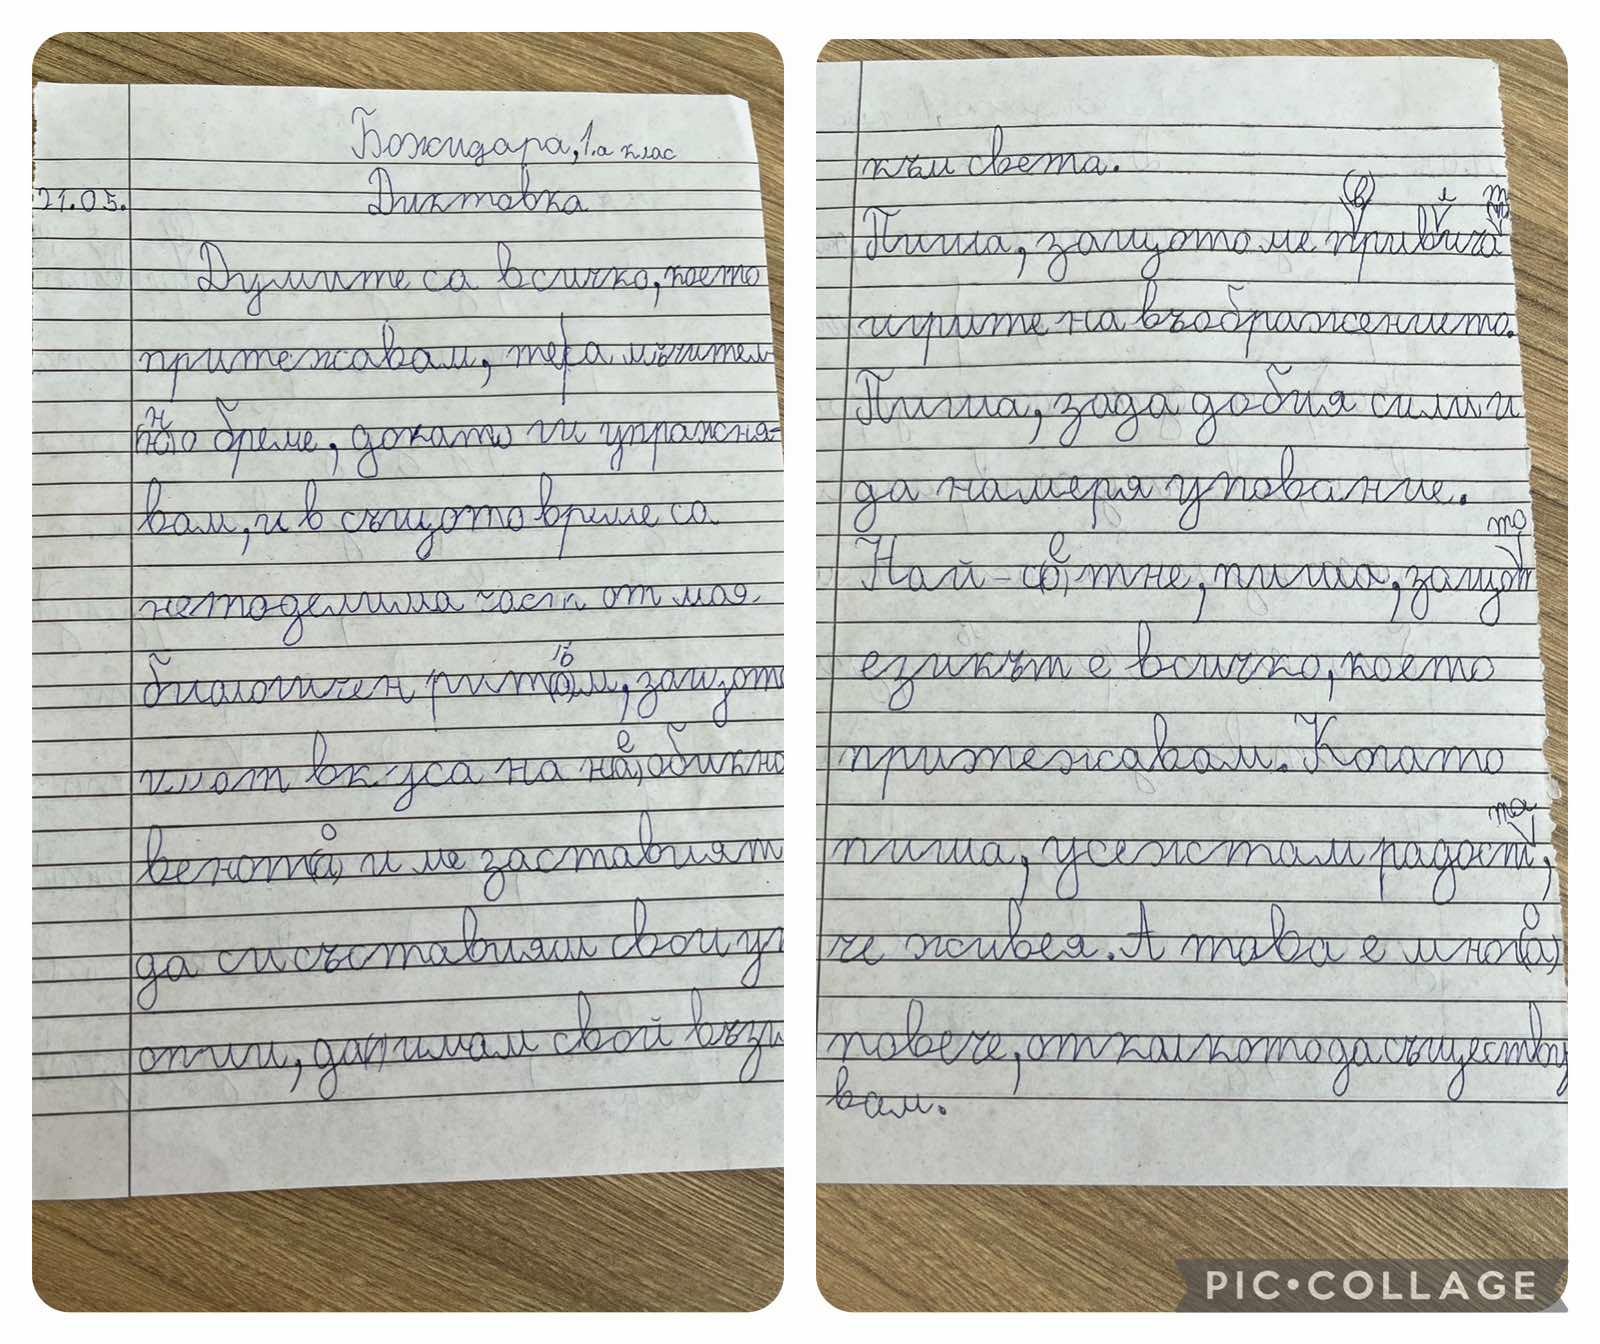 Божидара, 1.а клас
21.05.
Диктовка
Думите са всичко, което
притежавам, те са мъчител-
но бреме, докато ги упражня-
вам, и в същото време са
неподелима част от моя
биологичен ритъм, защото
имат вкуса на необикно
веното и ме заставят
да си съставям свои у
опии, да имам свой възг
към света.
Пиша, защото ме привича
игрите на въображението.
Пиша, за да добия сили и
да намеря упование.
Най-сетне, пиша, защото
езикът е всичко, което
притежавам. Когато
пиша, усещам радостта,
че живея. А това е много
повече, отколкото да съществу
вам.
PIC•COLLAGE